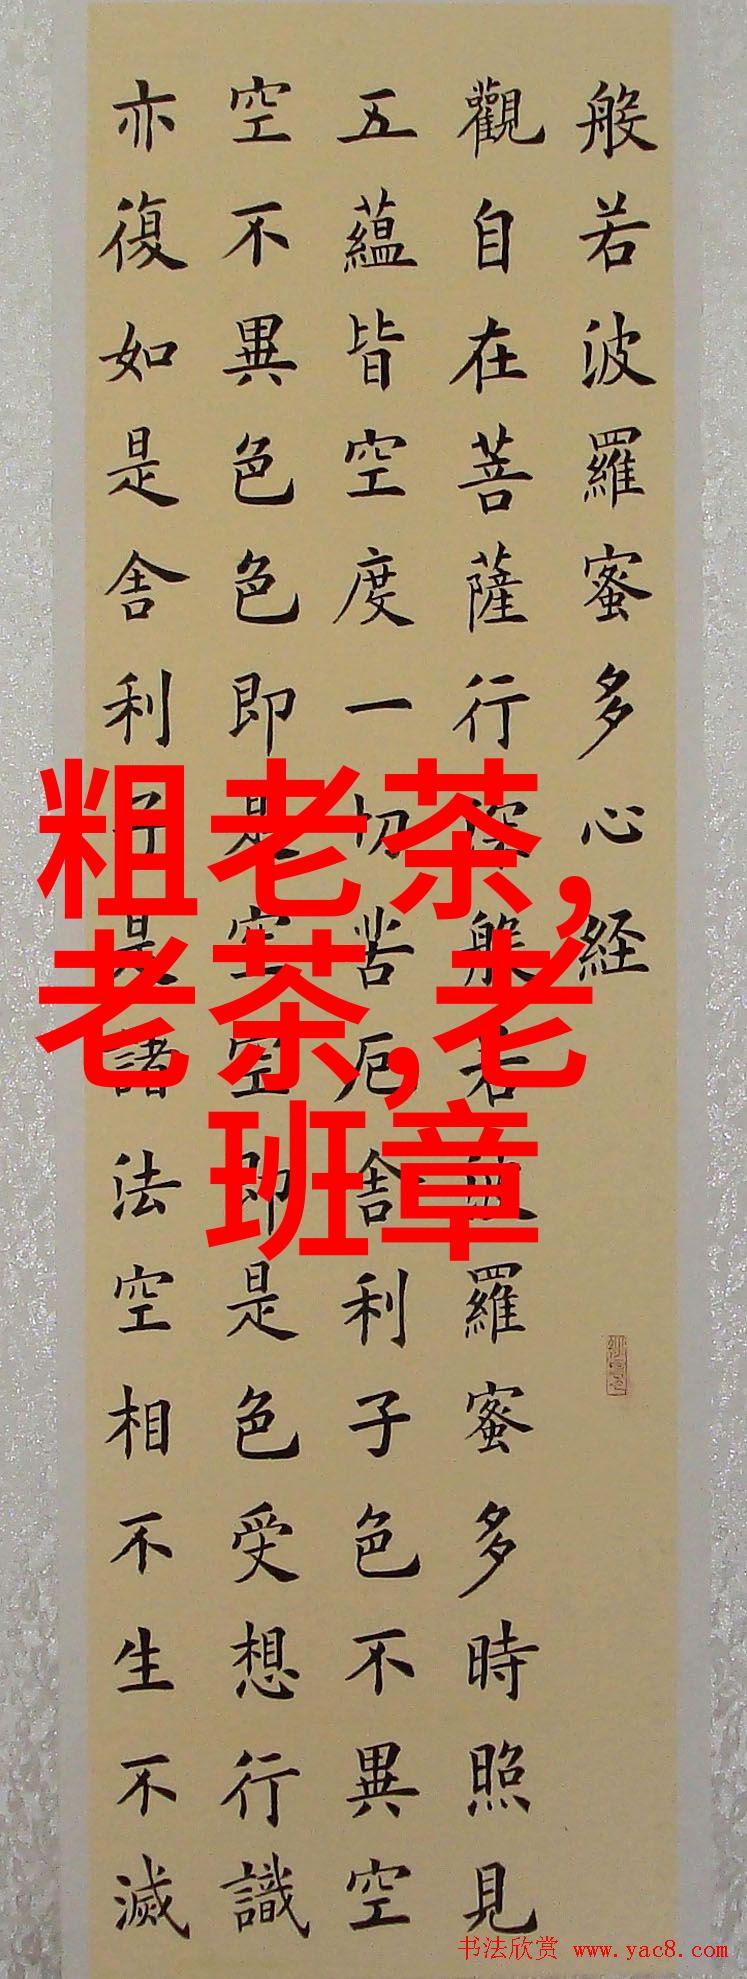 般若波羅蜜多心経
觀自在菩薩行深般若波羅蜜多時照見
五蘊皆空度一切苦厄舎利子色不異空
空不異色色即是空空即是色受想行識
亦復如是舎利子是諸法空相不生不滅
粗老茶,
老茶,老
班章
书法欣赏 www.yac8.com